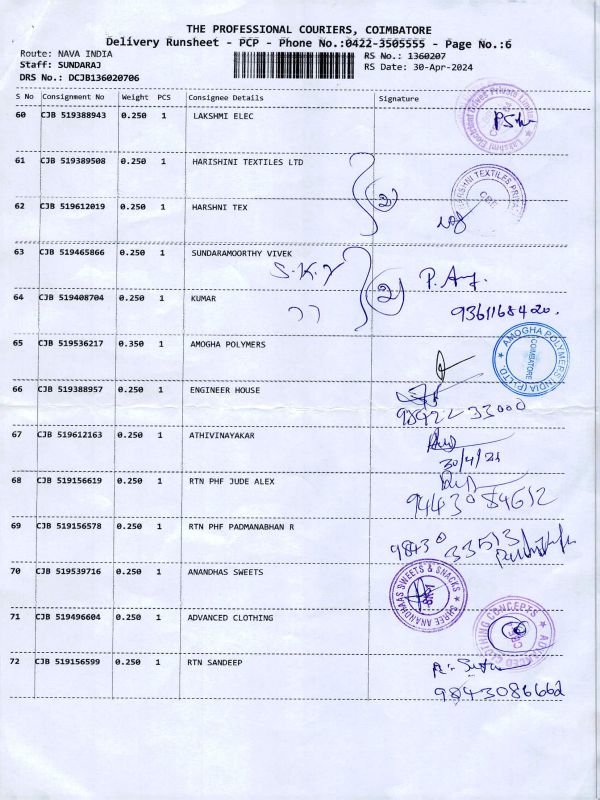 THE PROFESSIONAL COURIERS, COIMBATORE
Delivery Runsheet - PCP - Phone No.:0422-3505555 - Page No.:6
Route: NAVA INDIA
RS No.: 1360207
Staff: SUNDARAJ
RS Date: 30-Apr-2024
DRS No.: DCJB136020706
S No Consignment No Weight PCS Consignee Details Signature
60 CJB 519388943 0.250 1 LAKSHMI ELEC
61 CJB 519389508 0.250 1 HARISHINI TEXTILES LTD
2
62 CJB 519612019 0.250 1 HARSHNI TEX
63 CJB 519465866 0.250 1 SUNDARAMOORTHY VIVEK
S.K.V
2
64 CJB 519408704 0.250 1 KUMAR
9361168420.
65 CJB 519536217 0.350 1 AMOGHA POLYMERS
AMOGHA POLYMERS INDIA (P) LTD
COIMBATORE
66 CJB 519388957 0.250 1 ENGINEER HOUSE
98422 33000
67 CJB 519612163 0.250 1 ATHIVINAYAKAR
30/4/24
68 CJB 519156619 0.250 1 RTN PHF JUDE ALEX
9443084612
69 CJB 519156578 0.250 1 RTN PHF PADMANABHAN R
98430 33513
70 CJB 519539716 0.250 1 ANANDHAS SWEETS
SHREE ANANDHAAS SWEETS & SNACKS
71 CJB 519496604 0.250 1 ADVANCED CLOTHING
ADVANCED CLOTHING CONCEPTS
72 CJB 519156599 0.250 1 RTN SANDEEP
9843086662